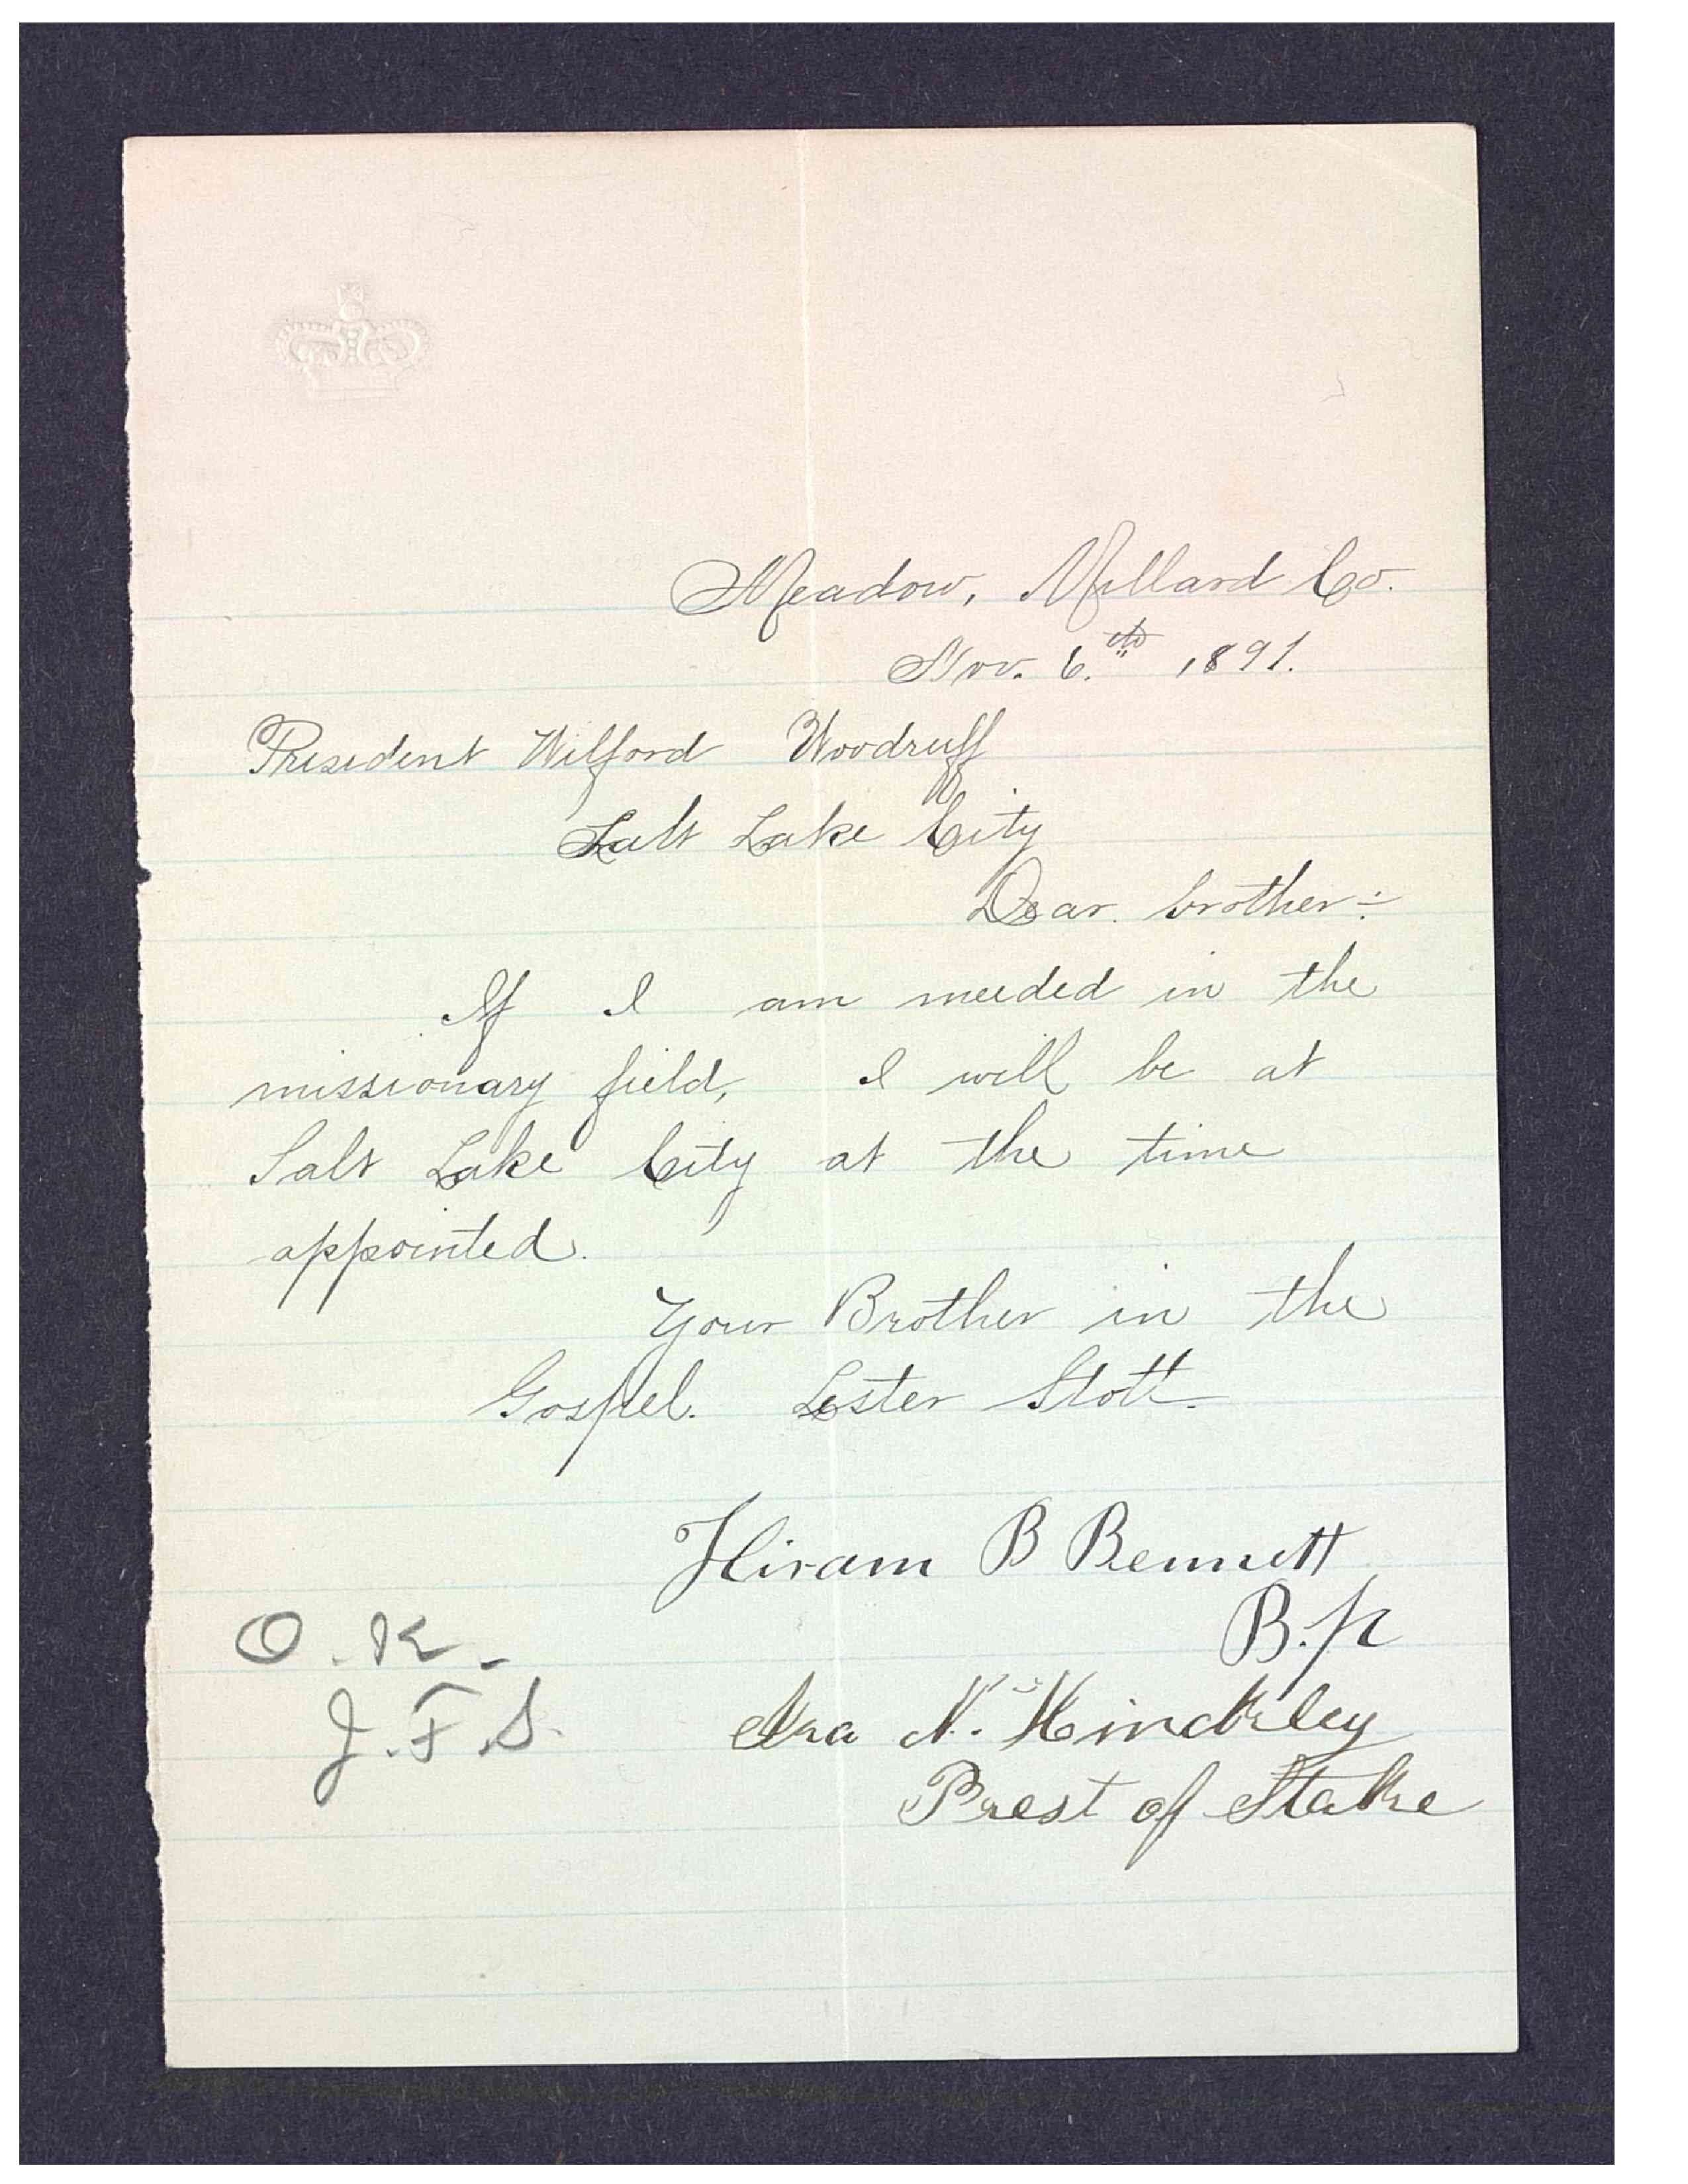 Meadow, Millard Co.
Nov. 6.th 1891.
President Wilford Woodruff
Salt Lake City
Dear brother:-
If I am needed in the
missionary field, I will be at
Salt Lake City at the time
appointed.
Your Brother in the
Gospel. Lester Stott.
Hiram B Bennett
B.p
O.K.
J.F.S.
Ira N. Hinckley
Prest of Stake